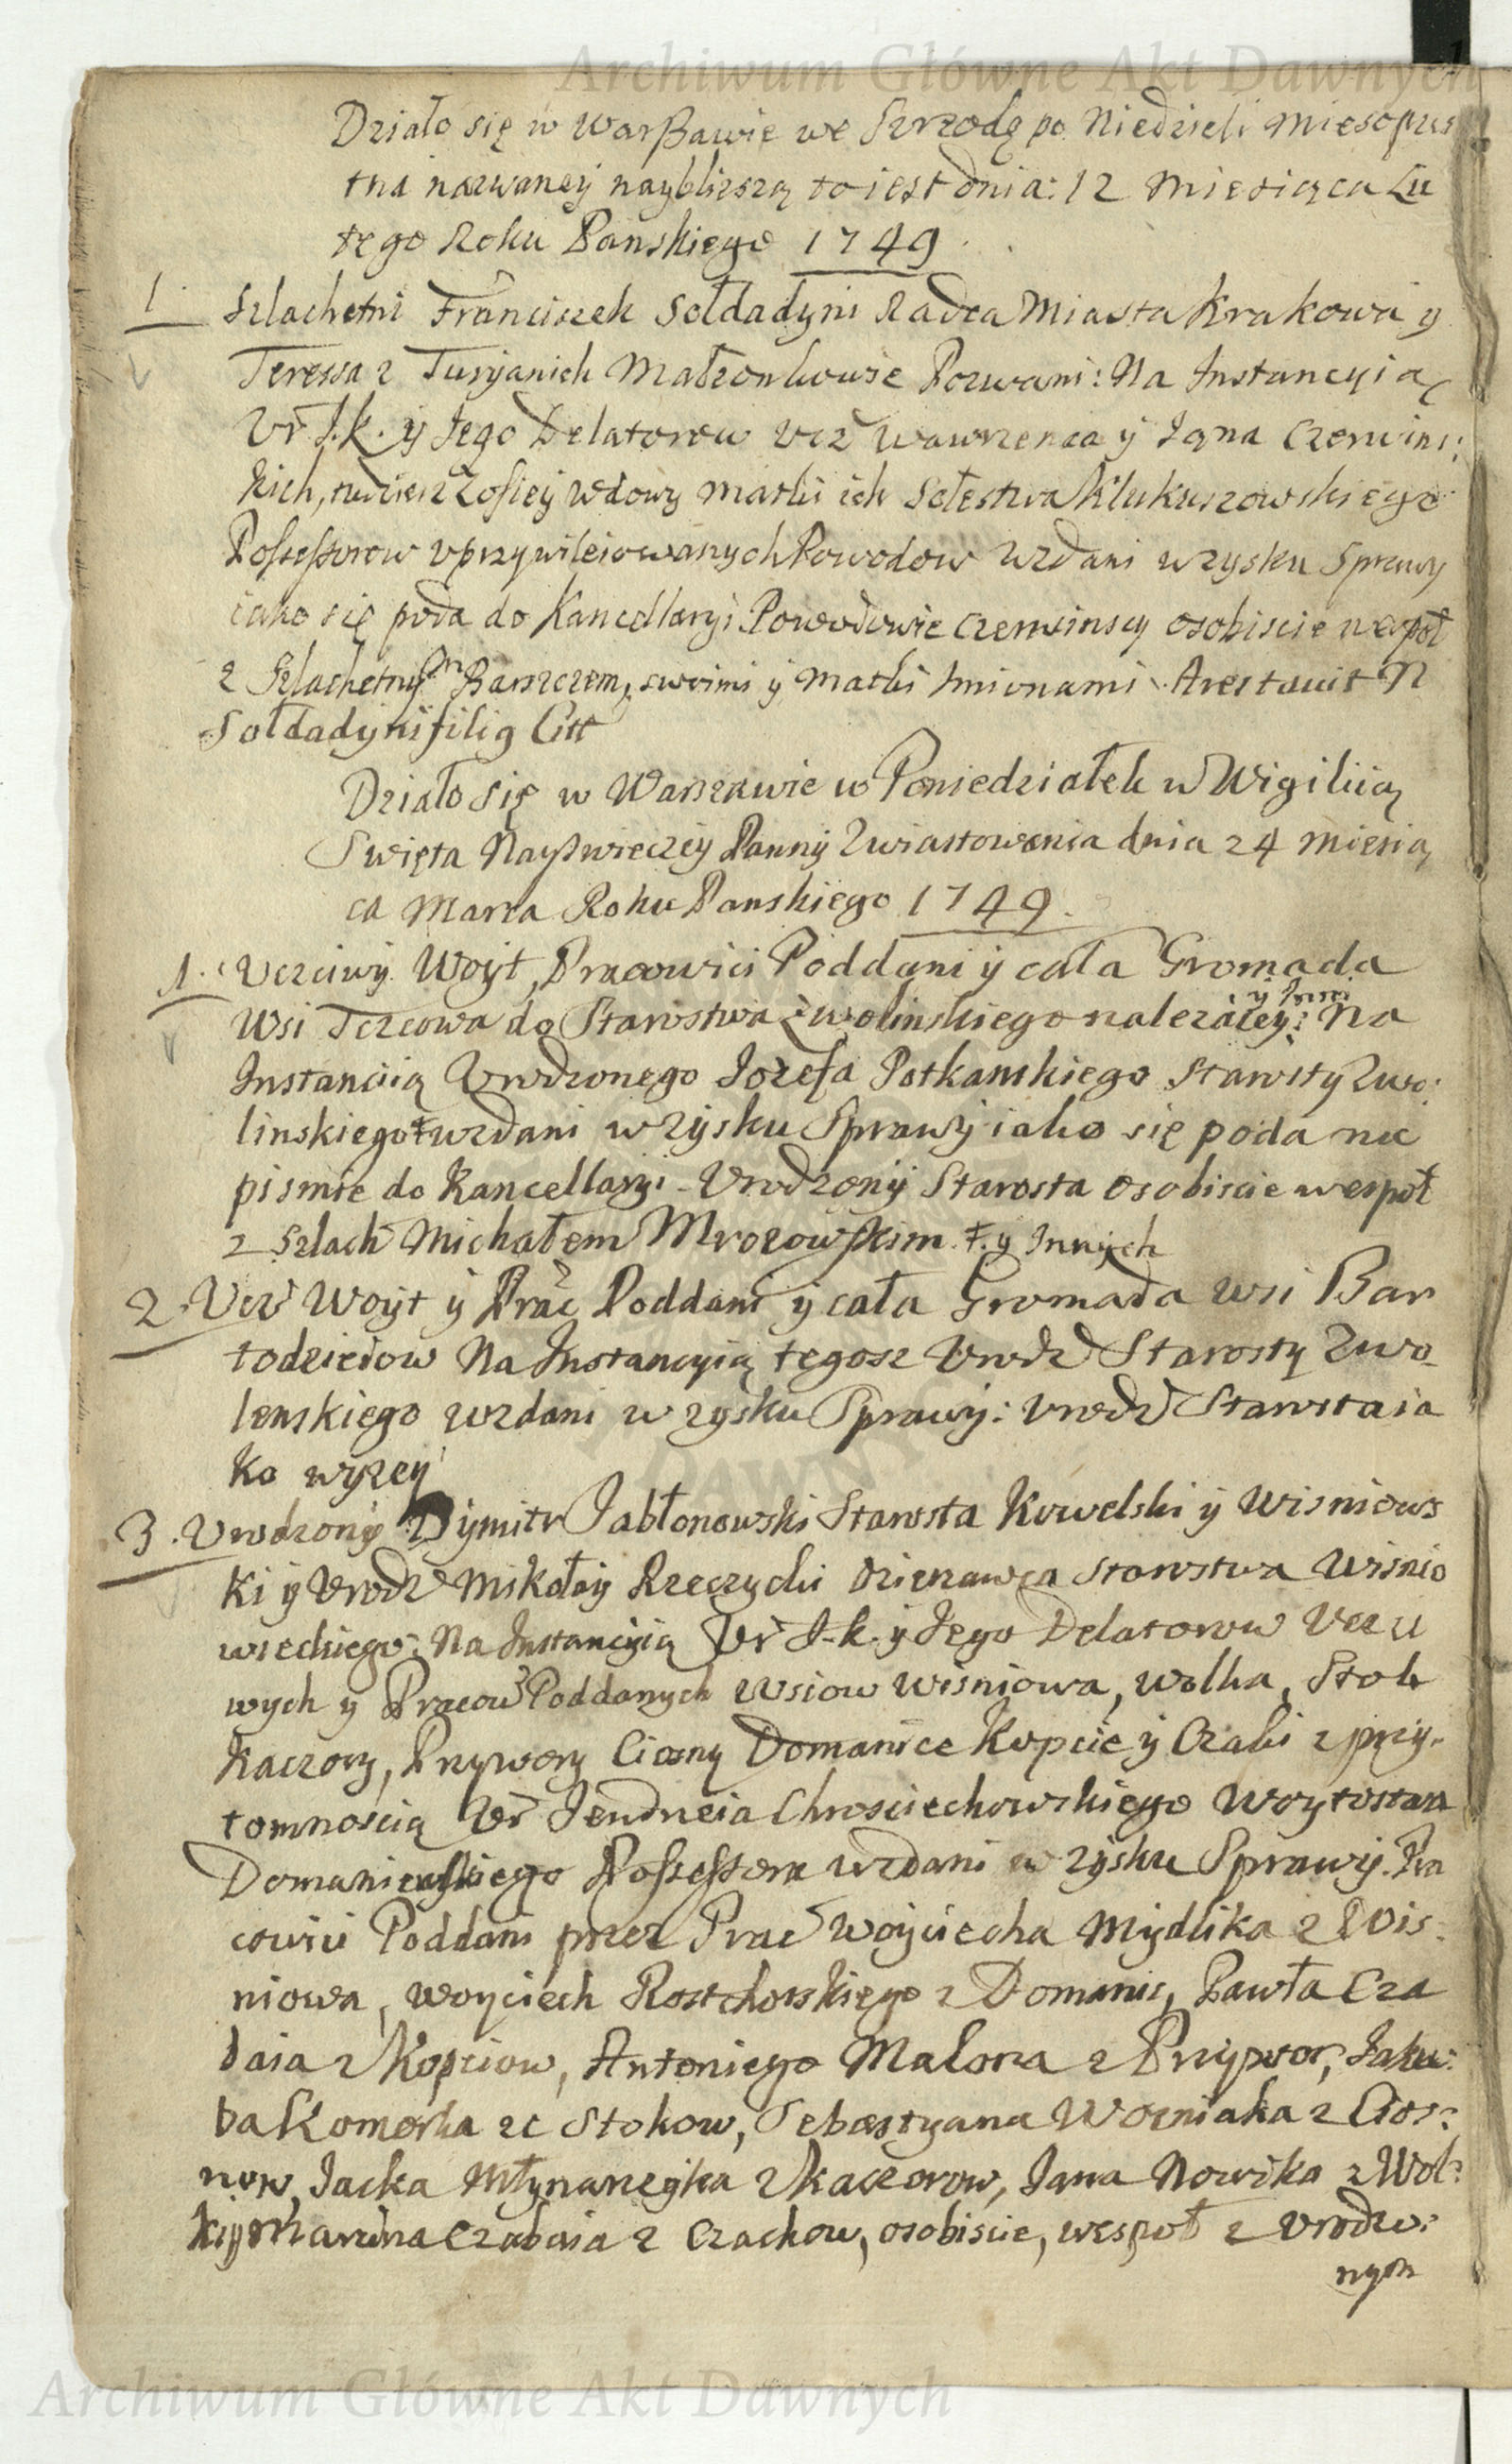 Archiwum Główne Akt Dawnych
Działo się w Warszawie we Szrzodę po Niedzieli Miesopus
tna nazwaney naybliższą to iest dnia: 12 Miesiąca Lu
tego Roku Panskiego 1749.
1. Szlachetni Franciszek Sołdadyni Radca Miasta Krakowa y
Teressa z Małzonkowie Pozwani: Na Instancyią
Ur J.k. y Jego Delatorow Ucz Wawrzenca y Jana Czerwins:
kich, tudziesz Zofiey wdowy matki ich Sołestwa Klukuszowskiego
Possessorow uprzywileiowanych Powodow wzdani w zysku Sprawy
iako się poda do Kancellaryi Powodowie Czerwinscy osobiscie wespoł
z Szlachetnym Barszczem, swoimi y Matki Imionami. N
Sołdadyni
Działo się w Warszawie w Poniedziałek w Wigiliią
Swięta Nayswieczey Panny Zwiastowania dnia 24 Miesią
ca Marca Roku Panskiego 1749.
1. Uczciwy Woyt, Pracowici Poddani y cała Gromada
Wsi Tczcowa do Starostwa Zwolinskiego należącey y Inni: Na
Instanciią Urodzonego Jozefa Potkanskiego Starosty Zwo:
linskiego ŧ wzdani w zysku Sprawy iako się poda na
pismie do Kancellaryi - Urodzony Starosta osobiscie wespoł
z Szlach Michałem Mrozowskim. ŧ. y Innych
2. Ucz Woyt y Prac Poddani y cała Gromada wsi Bar
todzieiow Na Instancyią tegosz Urodz Starosty Zwo_
lenskiego wzdani w zysku Sprawy: Urodz Starosta ia
ko wyzey
3. Urodzony Dymitr Jabłonowski Starosta Kowelski y Wisniows
ki y Urodz Mikołay Rzeczycki Dzierzawca Starostwa Wisnio
wieckiego: Na Instancyią Ur J.k. y Jego Delatorow Uczci
wych y Pracow Poddanych Wsiow Wisniowa, Wolka, Stok
Kaczory, Przywory Ciosny Domanice Kopcie y Czaki z przy.
tomnością Ur Jendrzeia Chrosciechowskiego Woytostwa
Domaniewskiego Possessora wzdani w zysku Sprawy. Pra
cowici Poddani przez Prac Woyciecha Mydlika z Wis:
niowa, Woyciech z Domanic, Pawła Cza
baia z Kopciow, Antoniego Malona z Przywor, Jaku:
ba Komorka ze Stokow, Sebastyana Wozniaka z Cios:
now, Jacka Młynarczyka z Kaczorow, Jana Nowika z Wol:
ki y Marcina Czabaia z Czackow, osobiscie, wespoł z Urodzo:
nym
Archiwum Główne Akt Dawnych